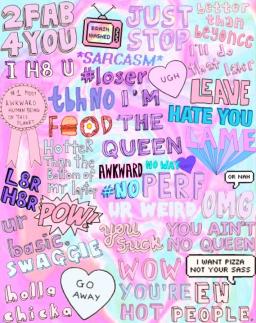 2FAB
4YOU
BRAIN
WASHED
JUST
STOP
better
than
beyonce
I H8 U
*SARCASM*
#loser
UGH
I'll do
that later
#1 MOST
AWKWARD
HUMAN BEING
ON THIS
PLANET
tbh NO
I'M
THE
QUEEN
LEAVE
HATE YOU
LAME
FOOD
Hotter
Than the
Bottom of
my laptop
AWKWARD
NO WAY
#NO
PERF
OR NAH
L8R
H8R
POW!
UR WEIRD
OMG
ur
basic.
you
suck
YOU AIN'T
NO QUEEN
SWAGGIE
I WANT PIZZA
NOT YOUR SASS
holla
chicka
GO
AWAY
WOW
YOU'RE
HOT
EW
PEOPLE.